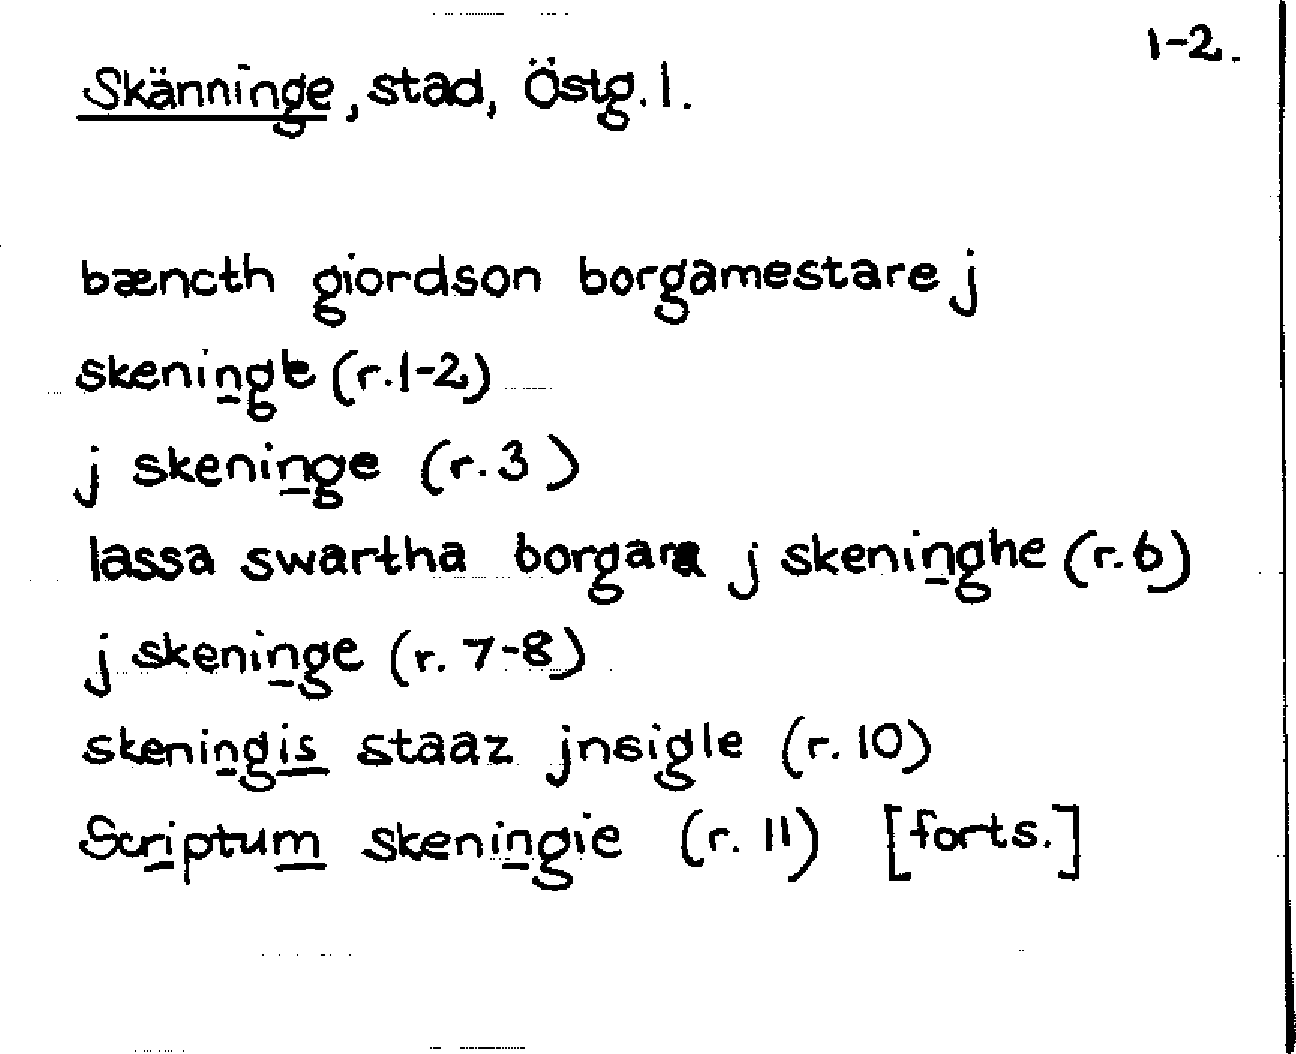 1-2.
Skänninge, stad, Östg. l.
bæncth giordson borgamestare j
skeninge (r. 1-2)
j skeninge (r. 3)
lassa swartha borgara j skeninghe (r. 6)
j skeninge (r. 7-8)
skeningis staaz jnsigle (r. 10)
Scriptum skeningie (r. 11) [forts.]